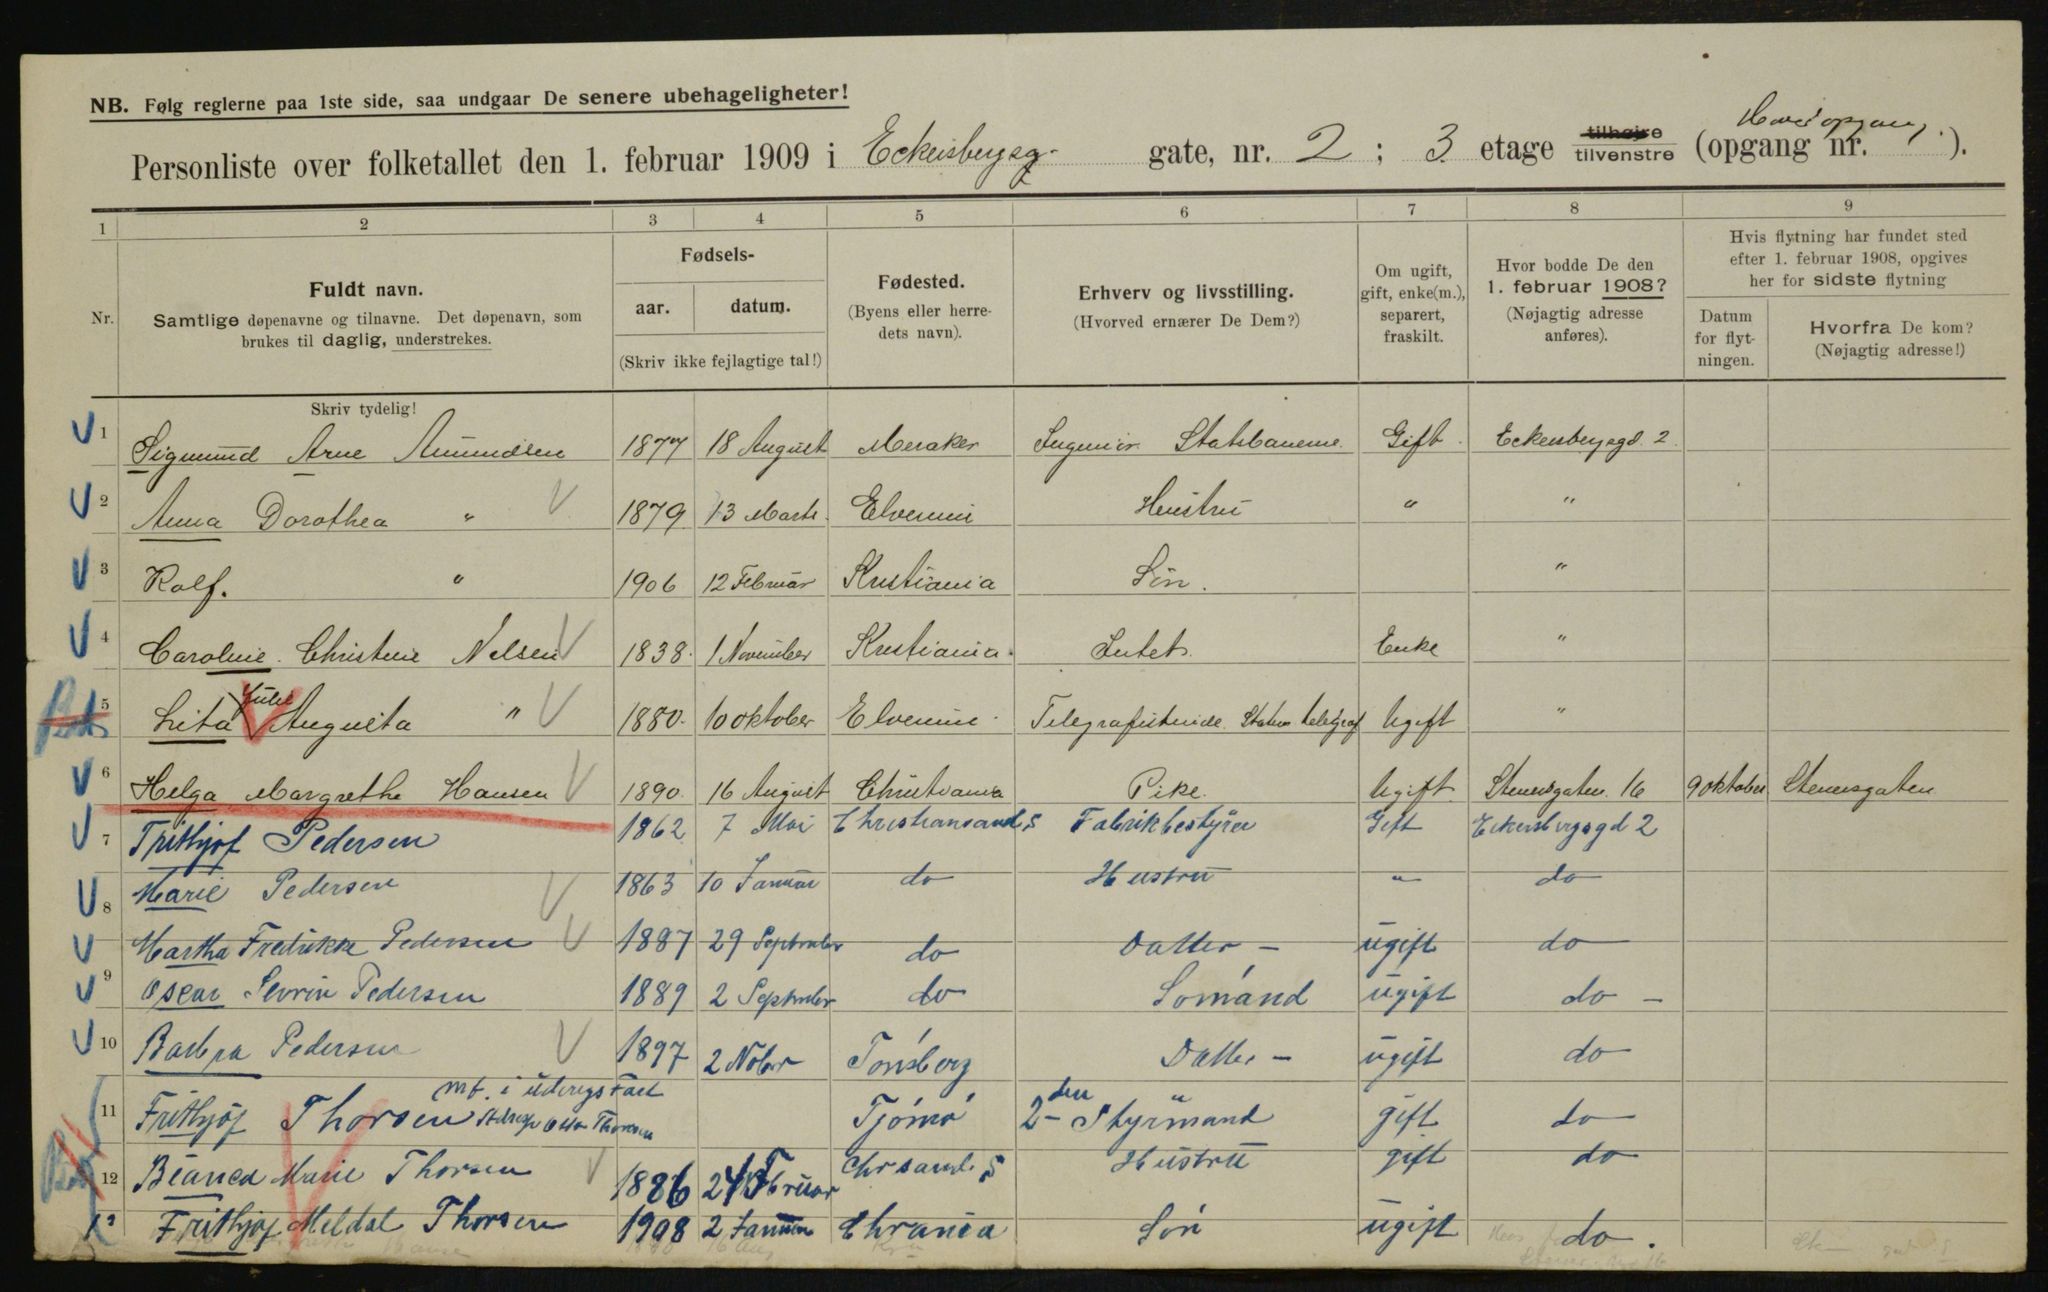 NB. Følg reglerne paa 1ste side, saa undgaar De senere ubehageligheter!
Personliste over folketallet den 1. februar 1909 i Eckersbergsg. gate, nr. 2; 3 etage tilhøjre tilvenstre (opgang nr. Hovedopgang).
1 2 3 4 5 6 7 8 9
Nr.
Fuldt navn.
Samtlige døpenavne og tilnavne. Det døpenavn, som
brukes til daglig, understrekes.
Fødsels-
aar. datum.
(Skriv ikke fejlagtige tal!)
Fødested.
(Byens eller herre-
dets navn).
Erhverv og livsstilling.
(Hvorved ernærer De Dem?)
Om ugift,
gift, enke(m.),
separert,
fraskilt.
Hvor bodde De den
1. februar 1908?
(Nøjagtig adresse
anføres).
Hvis flytning har fundet sted
efter 1. februar 1908, opgives
her for sidste flytning
Datum
for flyt-
ningen.
Hvorfra De kom?
(Nøjagtig adresse!)
Skriv tydelig!
1 Sigmund Arne Amundsen 1877 18 August Meraker Ingeniør Statsbanerne. Gift. Eckersbergsgd. 2
2 Anna Dorothea " 1879 13 Marts. Elverum Hustru " "
3 Rolf. " 1906 12 Februar Kristiania Søn. "
4 Caroline Christine Nilsen 1838. 1 November Kristiania. Intet. Enke "
5 Lita Julie Augusta " 1880. 10 oktober Elverum. Telegrafistinde. Statens telegraf Ugift "
6 Helga Margrethe Hansen 1890. 16 August Christiania Pike. Ugift. Stensgaten. 16 9 oktober Stensgaten
7 Frithjof Pedersen 1862 7 Mai Christiansand S Fabrikbestyrer Gift Eckersbergsgd 2
8 Marie Pedersen 1863 10 Januar do Hustru " do
Martha Fredrikke Pedersen 1887 29 September do Datter - ugift do
9 Oscar Sevrin Pedersen 1889 2 September do Sømand ugift do -
10 Barbra Pedersen 1897 2 Nobr Tønsberg Datter - ugift do
mt. i udenrigsfart
11 Frithjof Thorsen Thorsen Tjømø 2-den Styrmand gift do
12 Bianca Marie Thorsen 1886 24 Februar Chrsand S Hustru gift do
Frithjof Meldal Thorsen 1908 2 Januar Chrania Søn ugift do.